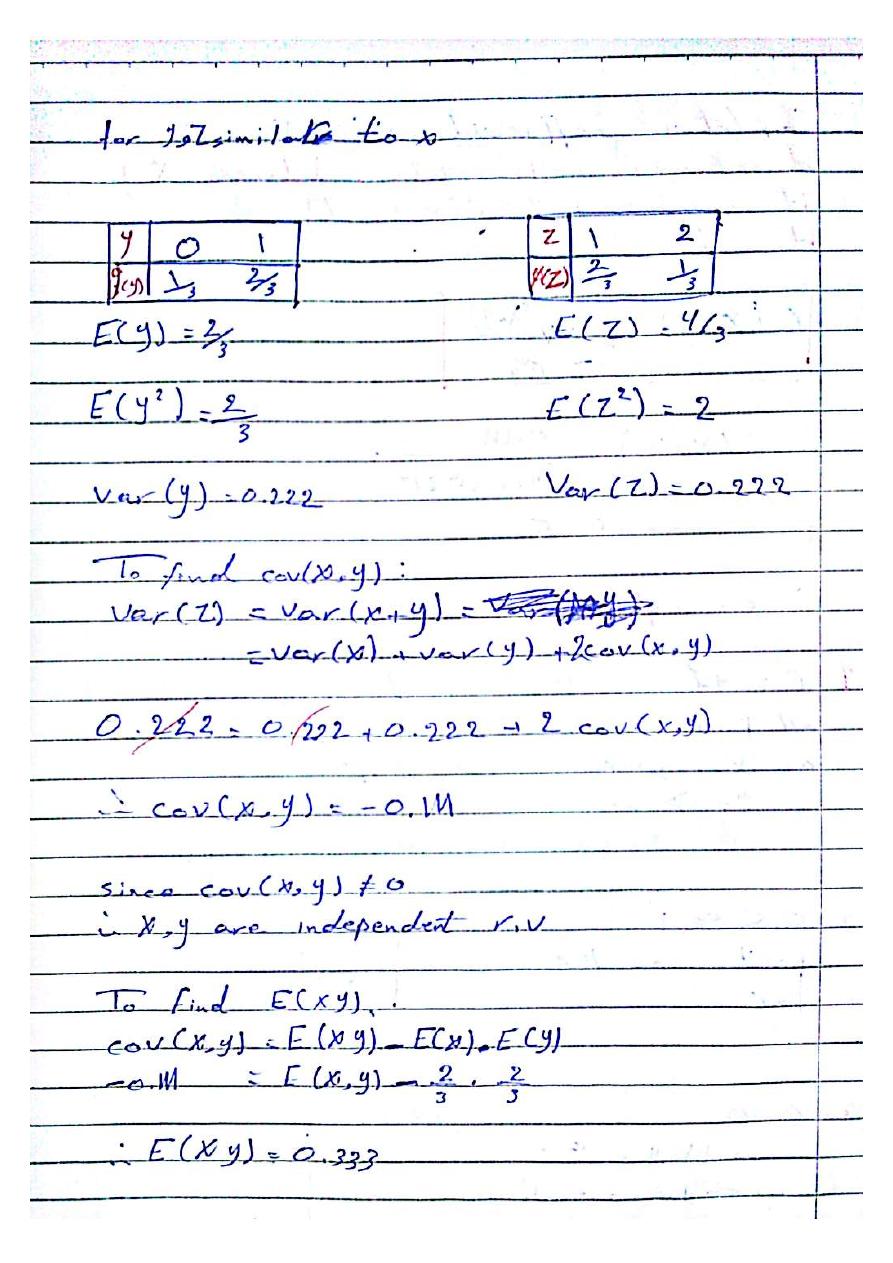 for y,z similar to x
y 0 1
g(y) 1/3 2/3
z 1 2
(z) 2/3 1/3
E(y) = 2/3
E(z) = 4/3
E(y²) = 2/3
E(z²) = 2
var(y) = 0.222
Var(z) = 0.222
To find cov(x,y) :
var(z) = var(x+y) =
= var(x) + var(y) + 2cov(x,y)
0.222 = 0.222 + 0.222 + 2 cov(x,y)
∴ cov(x,y) = -0.111
since cov(x,y) ≠ 0
∴ x,y are independent r.v
To find E(xy) .
cov(x,y) = E(xy) - E(x).E(y)
-0.111 = E(x,y) - 2/3 . 2/3
∴ E(xy) = 0.333